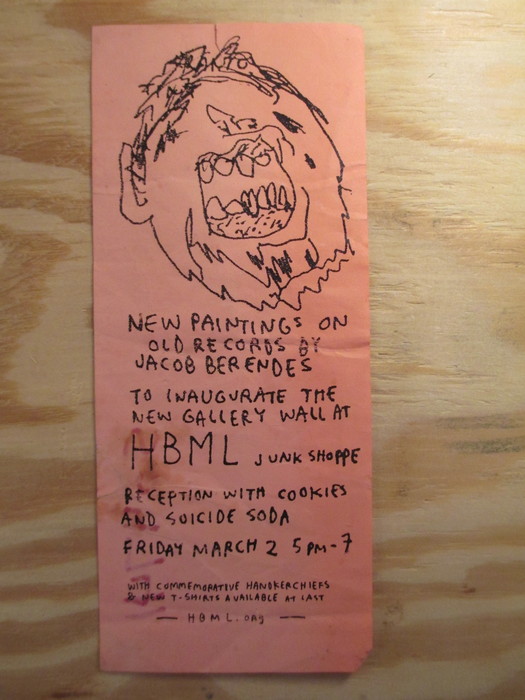 NEW PAINTINGS ON
OLD RECORDS BY
JACOB BERENDES
TO INAUGURATE THE
NEW GALLERY WALL AT
HBML JUNK SHOPPE
RECEPTION WITH COOKIES
AND SUICIDE SODA
FRIDAY MARCH 2 5PM-7
WITH COMMEMORATIVE HANDKERCHIEFS
& NEW T-SHIRTS AVAILABLE AT LAST
— HBML.ORG —